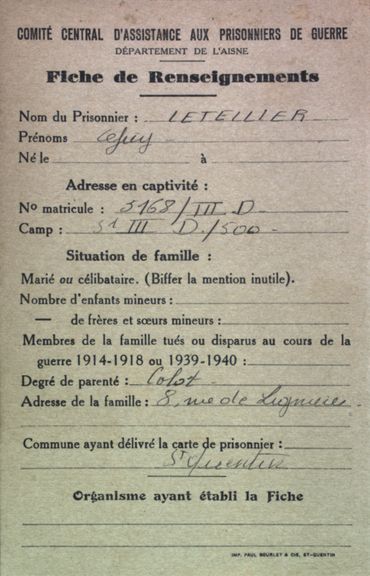 COMITÉ CENTRAL D'ASSISTANCE AUX PRISONNIERS DE GUERRE
DÉPARTEMENT DE L'AISNE
Fiche de Renseignements
Nom du Prisonnier : LETELLIER
Prénoms
Né le à
Adresse en captivité :
No matricule : 5168/III D
Camp : St III D./500
Situation de famille :
Marié ou célibataire. (Biffer la mention inutile).
Nombre d'enfants mineurs :
— de frères et sœurs mineurs :
Membres de la famille tués ou disparus au cours de la
guerre 1914-1918 ou 1939-1940 :
Degré de parenté :
Adresse de la famille : 8, rue de
Commune ayant délivré la carte de prisonnier :
St Quentin
Organisme ayant établi la Fiche
IMP. PAUL BOURLET & CIE, ST-QUENTIN